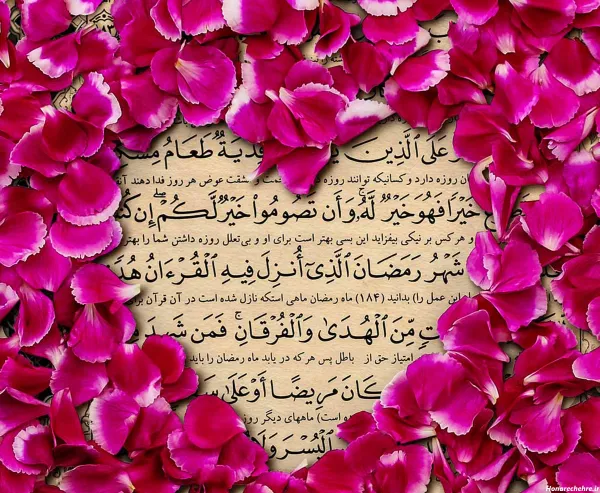 وَعَلَى ٱلَّذِينَ فِدْيَةٌ طَعَامُ
روزه دارد و کسانیکه توانند روزه و مشقت عوض هر روز فدا دهند
خَيْرًا فَهُوَ خَيْرٌ لَّهُۥ ۚ وَأَن تَصُومُوا۟ خَيْرٌ لَّكُمْ ۖ إِن
و هر کس بر نیکی بیفزاید این بسی بهتر است برای او و بی‌تعلل روزه داشتن شما را بهتر
شَهْرُ رَمَضَانَ ٱلَّذِىٓ أُنزِلَ فِيهِ ٱلْقُرْءَانُ
این عمل را) بدانید (۱۸۴) ماه رمضان ماهی استکه نازل شده است در آن قرآن برای
مِّنَ ٱلْهُدَىٰ وَٱلْفُرْقَانِ ۚ فَمَن شَهِدَ
امتیاز حق از باطل پس هر که در یابد ماه رمضان را باید
كَانَ مَرِيضًا أَوْ عَلَىٰ
شده است) ماههای دیگر
ٱلْيُسْرَ
Honarechehre.ir